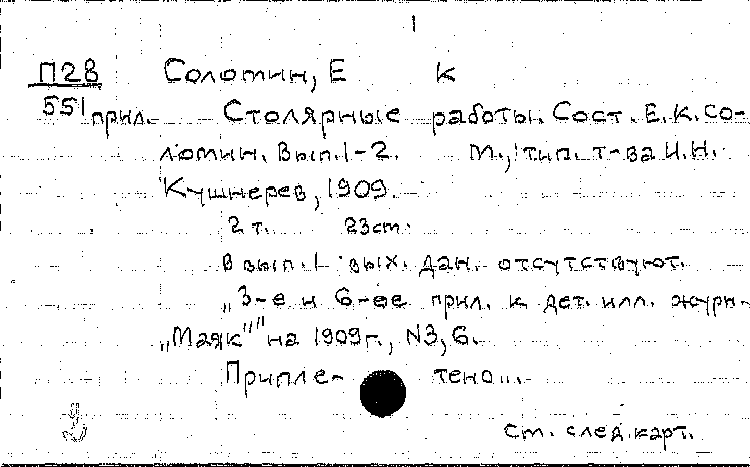 1
П28 Солотин, Е К
551 прил. Столярные работы. Сост. Е.К. Со-
лотин. Вып. 1-2. М., тип. т-ва И.Н.
Кушнерев, 1909.
2 т. 23 см.
В вып. 1 вых. дан. отсутствуют.
„3-е и 6-ее прил. к дет. илл. журн.
„Маяк"" на 1909 г., N3, 6.
Припле- тено...
См. след. карт.